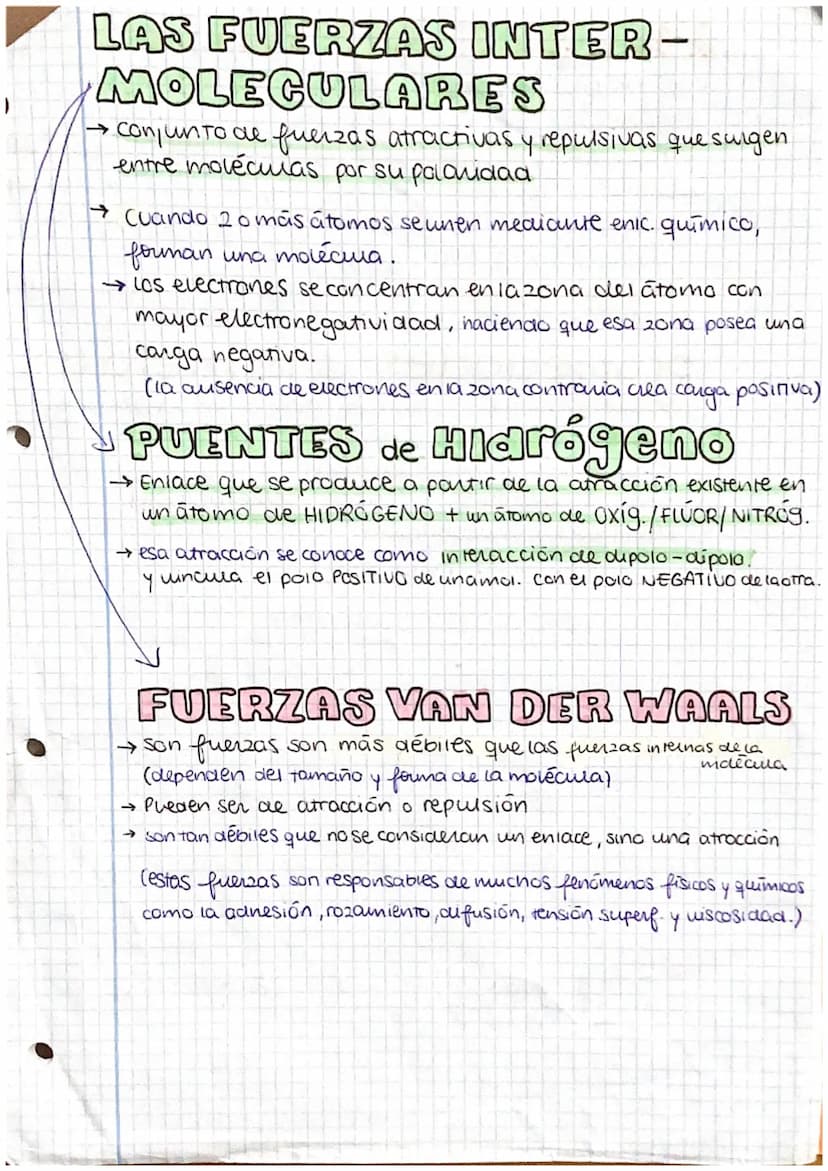 LAS FUERZAS INTER-
MOLECULARES
→ conjunto de fuerzas atractivas y repulsivas que surgen
entre moléculas por su polaridad
→ cuando 2 o más átomos se unen mediante enlc. químico,
forman una molécula.
→ los electrones se concentran en la zona del átomo con
mayor electronegatividad, haciendo que esa zona posea una
carga negativa.
(la ausencia de electrones en la zona contraria crea carga positiva)
PUENTES de HIdrógeno
→ Enlace que se produce a partir de la atracción existente en
un átomo de HIDRÓGENO + un átomo de OXÍg./FLÚOR/NITRÓg.
→ esa atracción se conoce como interacción de dipolo-dipolo.
y vincula el polo POSITIVO de una mol. con el polo NEGATIVO de la otra.
FUERZAS VAN DER WAALS
→ son fuerzas son más débiles que las fuerzas internas de la
molécula
(dependen del tamaño y forma de la molécula)
→ Pueden ser de atracción o repulsión
→ son tan débiles que no se consideran un enlace, sino una atracción
(estas fuerzas son responsables de muchos fenómenos físicos y químicos
como la adhesión, rozamiento, difusión, tensión superf. y viscosidad.)